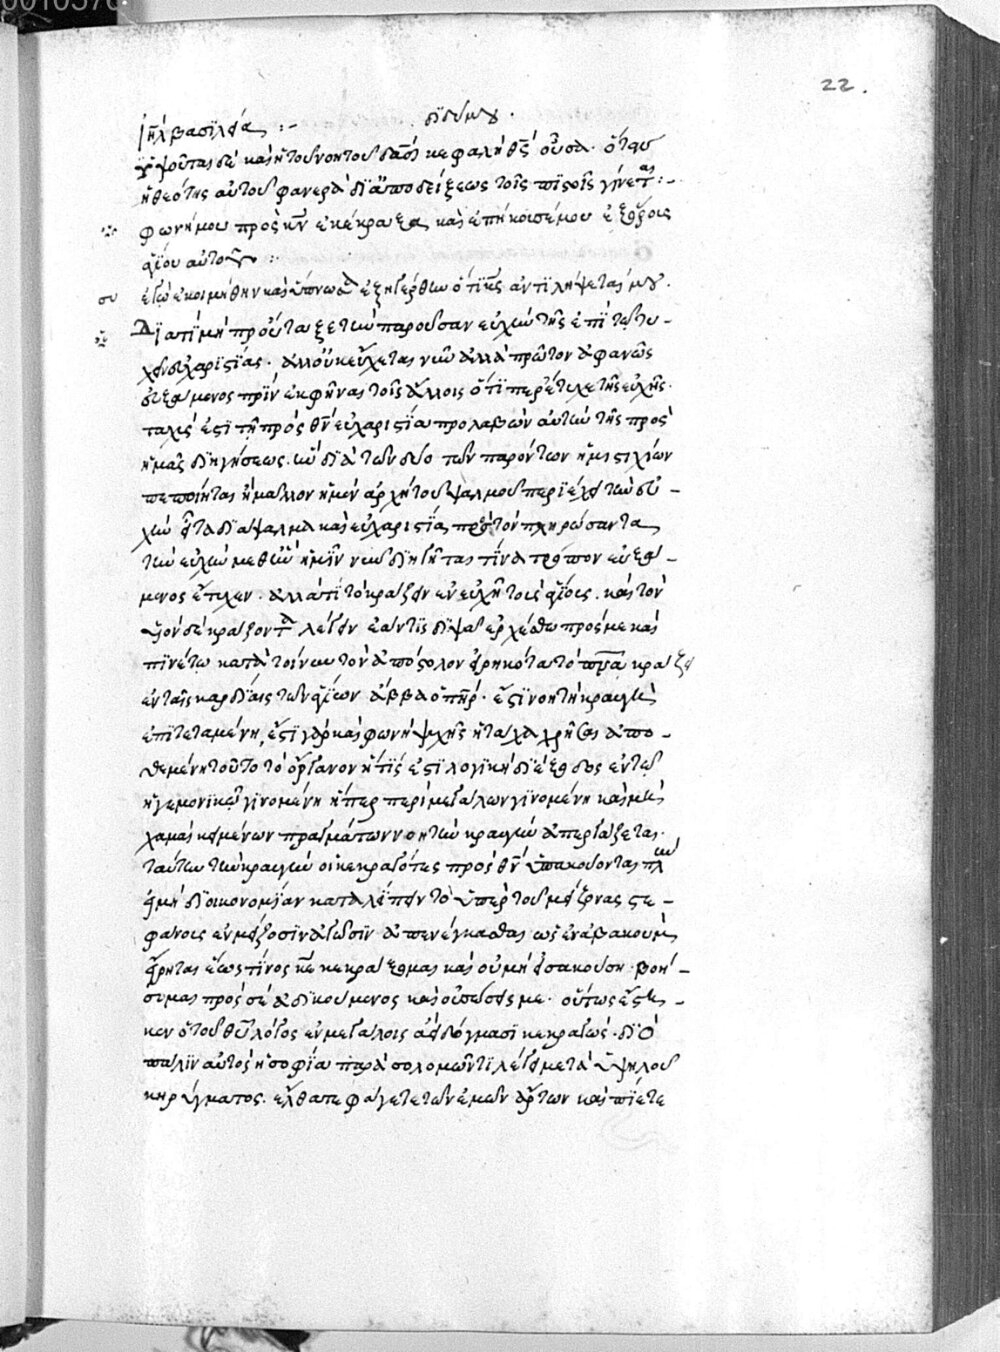 22.
διδύμου.
ἰηλ βασιλέα :-
ὑψοῦται δὲ καὶ ἡ τοῦ νοητοῦ δαδ κεφαλὴ θς οὖσα. ὅταν
ἡ θεότης αὐτοῦ φανερὰ δι' ἀποδείξεως τοῖς πιστοῖς γίνεται :-
φωνῇ μου πρὸς κν ἐκέκραξα καὶ ἐπήκουσέ μου ἐξ ὄρους
ἁγίου αὐτοῦ :
ἐγὼ ἐκοιμήθην καὶ ὕπνωσα ἐξηγέρθην ὅτι κς ἀντιλήψεταί μου.
Διατί μὴ προέταξε τὴν παροῦσαν εὐχὴν τῆς ἐπὶ τῷ τυ-
χεῖν εὐχαριστίας. ἀλλ' οὐκ εὔχεται νῦν ἀλλὰ πρῶτον ἀφανῶς
εὐξάμενος πρὶν ἐκφῆναι τοῖς ἄλλοις ὅτιπερ ἔτυχε τῆς εὐχῆς.
ταχὺς ἐστι τῇ πρὸς θν εὐχαριστίᾳ προλαβὼν αὐτὴν τῆς πρὸς
ἡμᾶς διηγήσεως. ἣν διὰ τῶν δύο τῶν παρόντων ἡμιστιχίων
πεποίηται ἢ μᾶλλον ἡ μὲν ἀρχὴ τοῦ ψαλμοῦ περιέχει τὴν εὐ-
χὴν εἶτα διάψαλμα καὶ εὐχαριστία πρὸς τὸν πληρώσαντα
τὴν εὐχὴν μεθ' ἣν ἡμῖν νῦν διηγεῖται τίνα τρόπον εὐξά-
μενος ἔτυχεν. ἀλλὰ τί τὸ κράζειν ἐν εὐχῇ τοὺς ἁγίους. καὶ τὸν
ιὸν δὲ κράζοντα λέγειν ἐάν τις διψᾷ ἐρχέσθω πρός με καὶ
πινέτω κατὰ τοίνυν τὸν ἀπόστολον εἰρηκότα τὸ πνα κράζει
ἐν ταῖς καρδίαις τῶν ἁγίων ἀββα ὁ πηρ. ἔστι νοητὴ κραυγὴ
ἐπιτεταμένη, ἔστι γὰρ καὶ φωνὴ ψυχῆς ἡ τάχα χρῆσις ἀπο-
θεμένη τοῦτο τὸ ὄργανον ἥτις ἐστι λογικὴ διέξοδος ἐν τῷ
ἡγεμονικῷ γινομένη ἥπερ περὶ μεγάλων γινομένη καὶ μὴ
χαμαὶ κειμένων πραγμάτων νοητὴν κραυγὴν ἀπεργάζεται.
ταύτην τὴν κραυγὴν οἱ κεκραγότες πρὸς θν ὑπακούονται πλὴν
εἰ μὴ δι' οἰκονομίαν καταλείπειν τὸ ὑπὲρ τοῦ μείζονας στε-
φάνους ἐν μείζοσιν ἀγῶσιν ἀπενέγκασθαι ὡς ἐν ἀβακοὺμ
εἴρηται ἕως τίνος κε κεκράξομαι καὶ οὐ μὴ εἰσακούσῃ. βοή-
σομαι πρὸς σὲ ἀδικούμενος καὶ οὐ σώσεις με. οὕτως ἔστη-
κεν ὁ τοῦ θυ λόγος ἐν μεγάλοις ἀεὶ δόγμασι κεκραγώς. διὸ
πάλιν αὐτὸς ἡ σοφία παρὰ σολομῶντι λέγει μετὰ ὑψηλοῦ
κηρύγματος. ἔλθατε φάγετε τῶν ἐμῶν ἄρτων καὶ πίετε